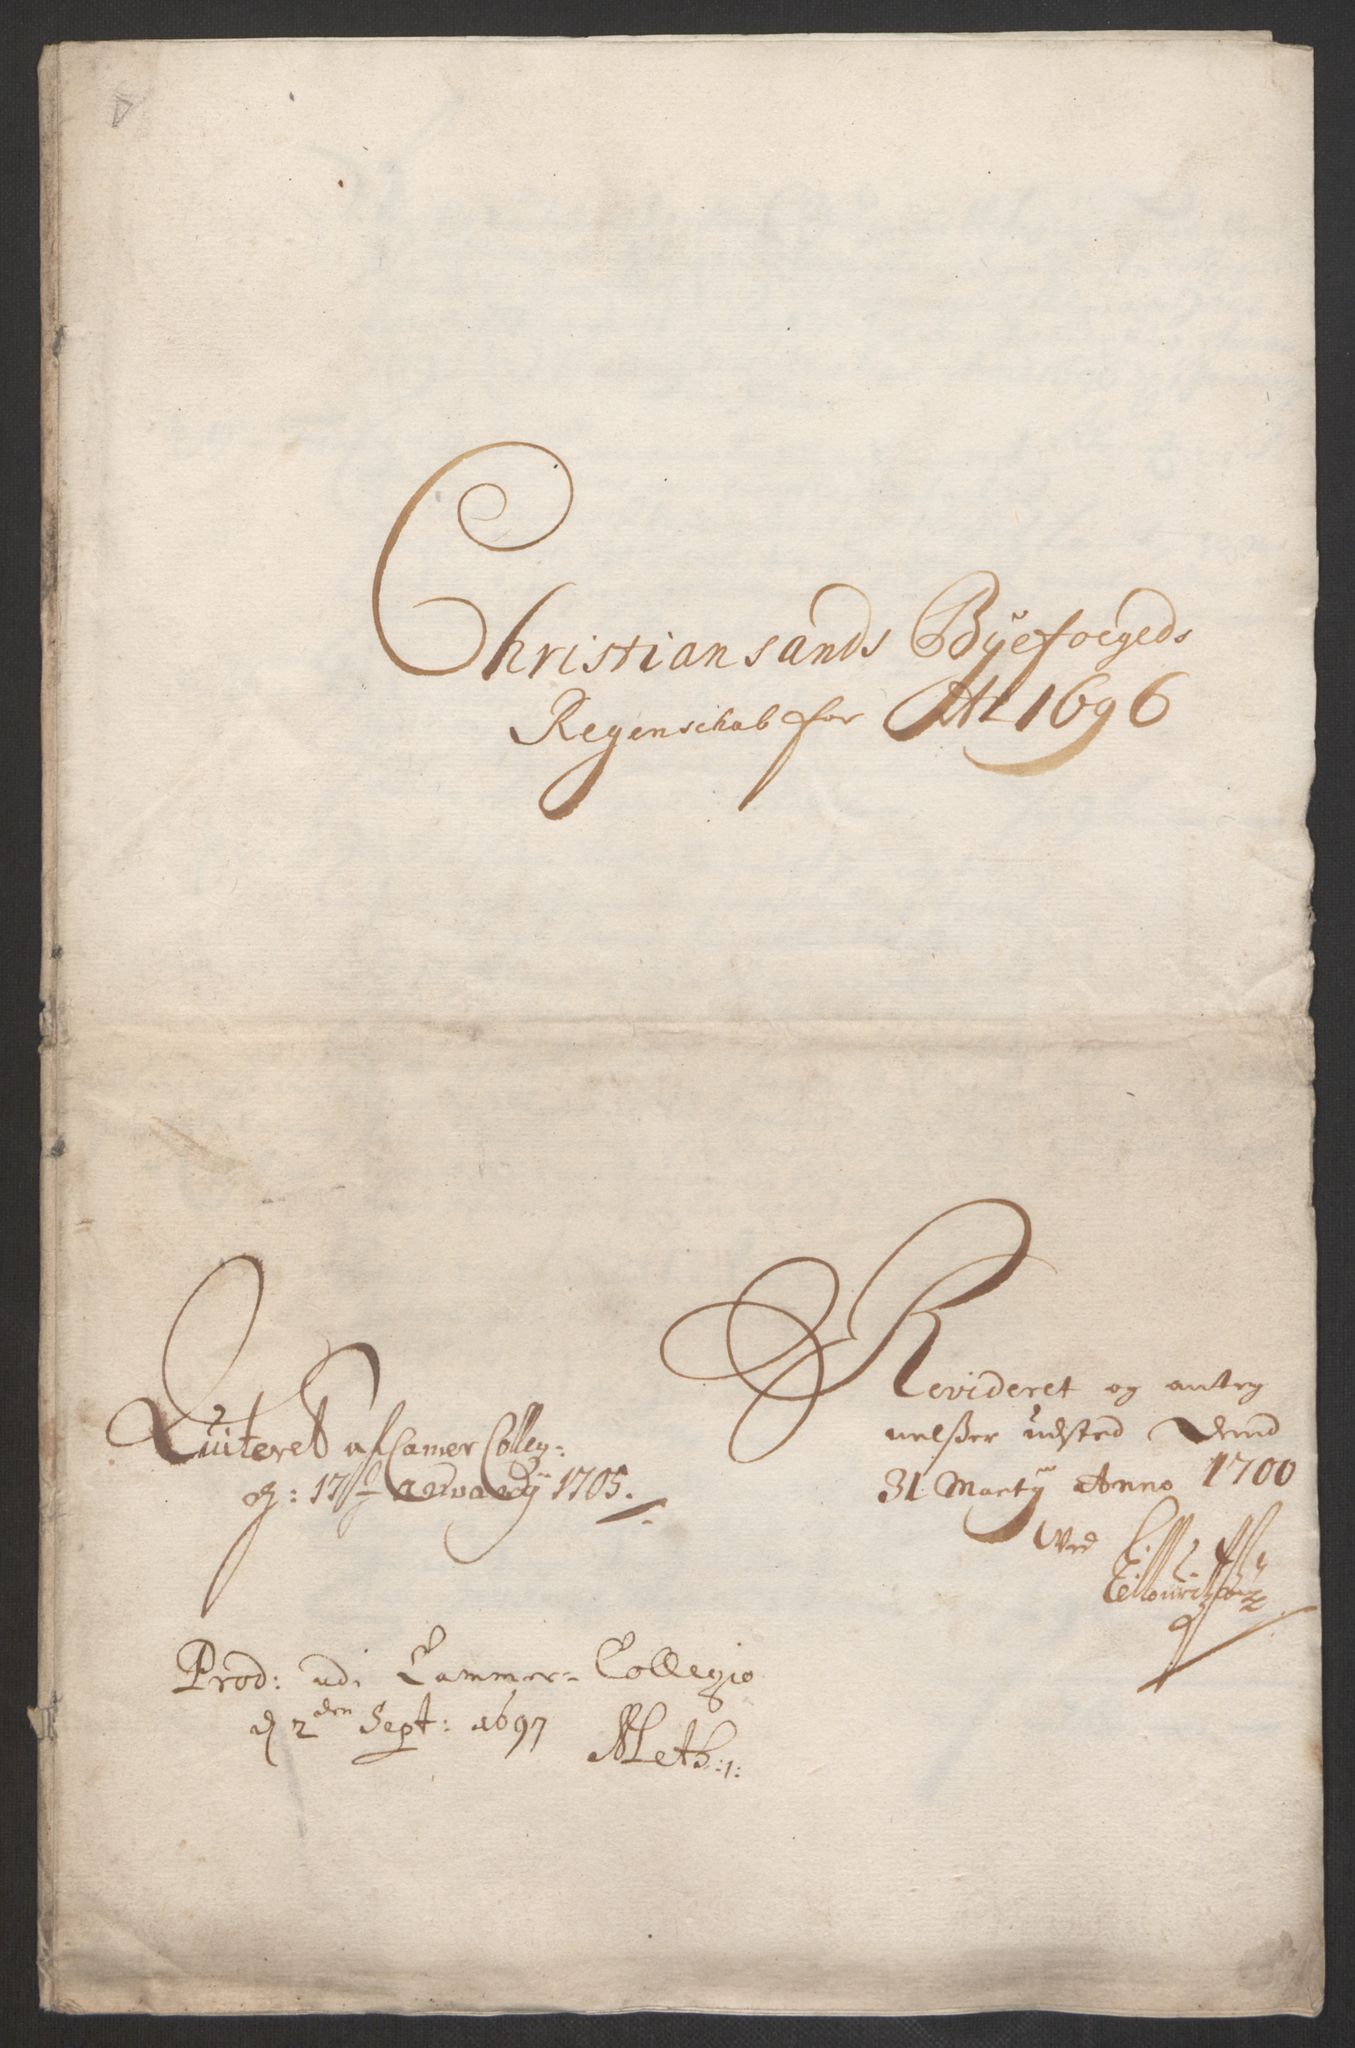 Christiansands Byefoegeds
Regenschab for Ao 1696
Quiteret af Camer Colleg:
d: 17 Februarÿ 1705.
Revideret og anteg
nelßer udsted Dend
31 Martÿ Anno 1700
Ved
Prod: udi Cammer- Collegio
d 2den Sept: 1697